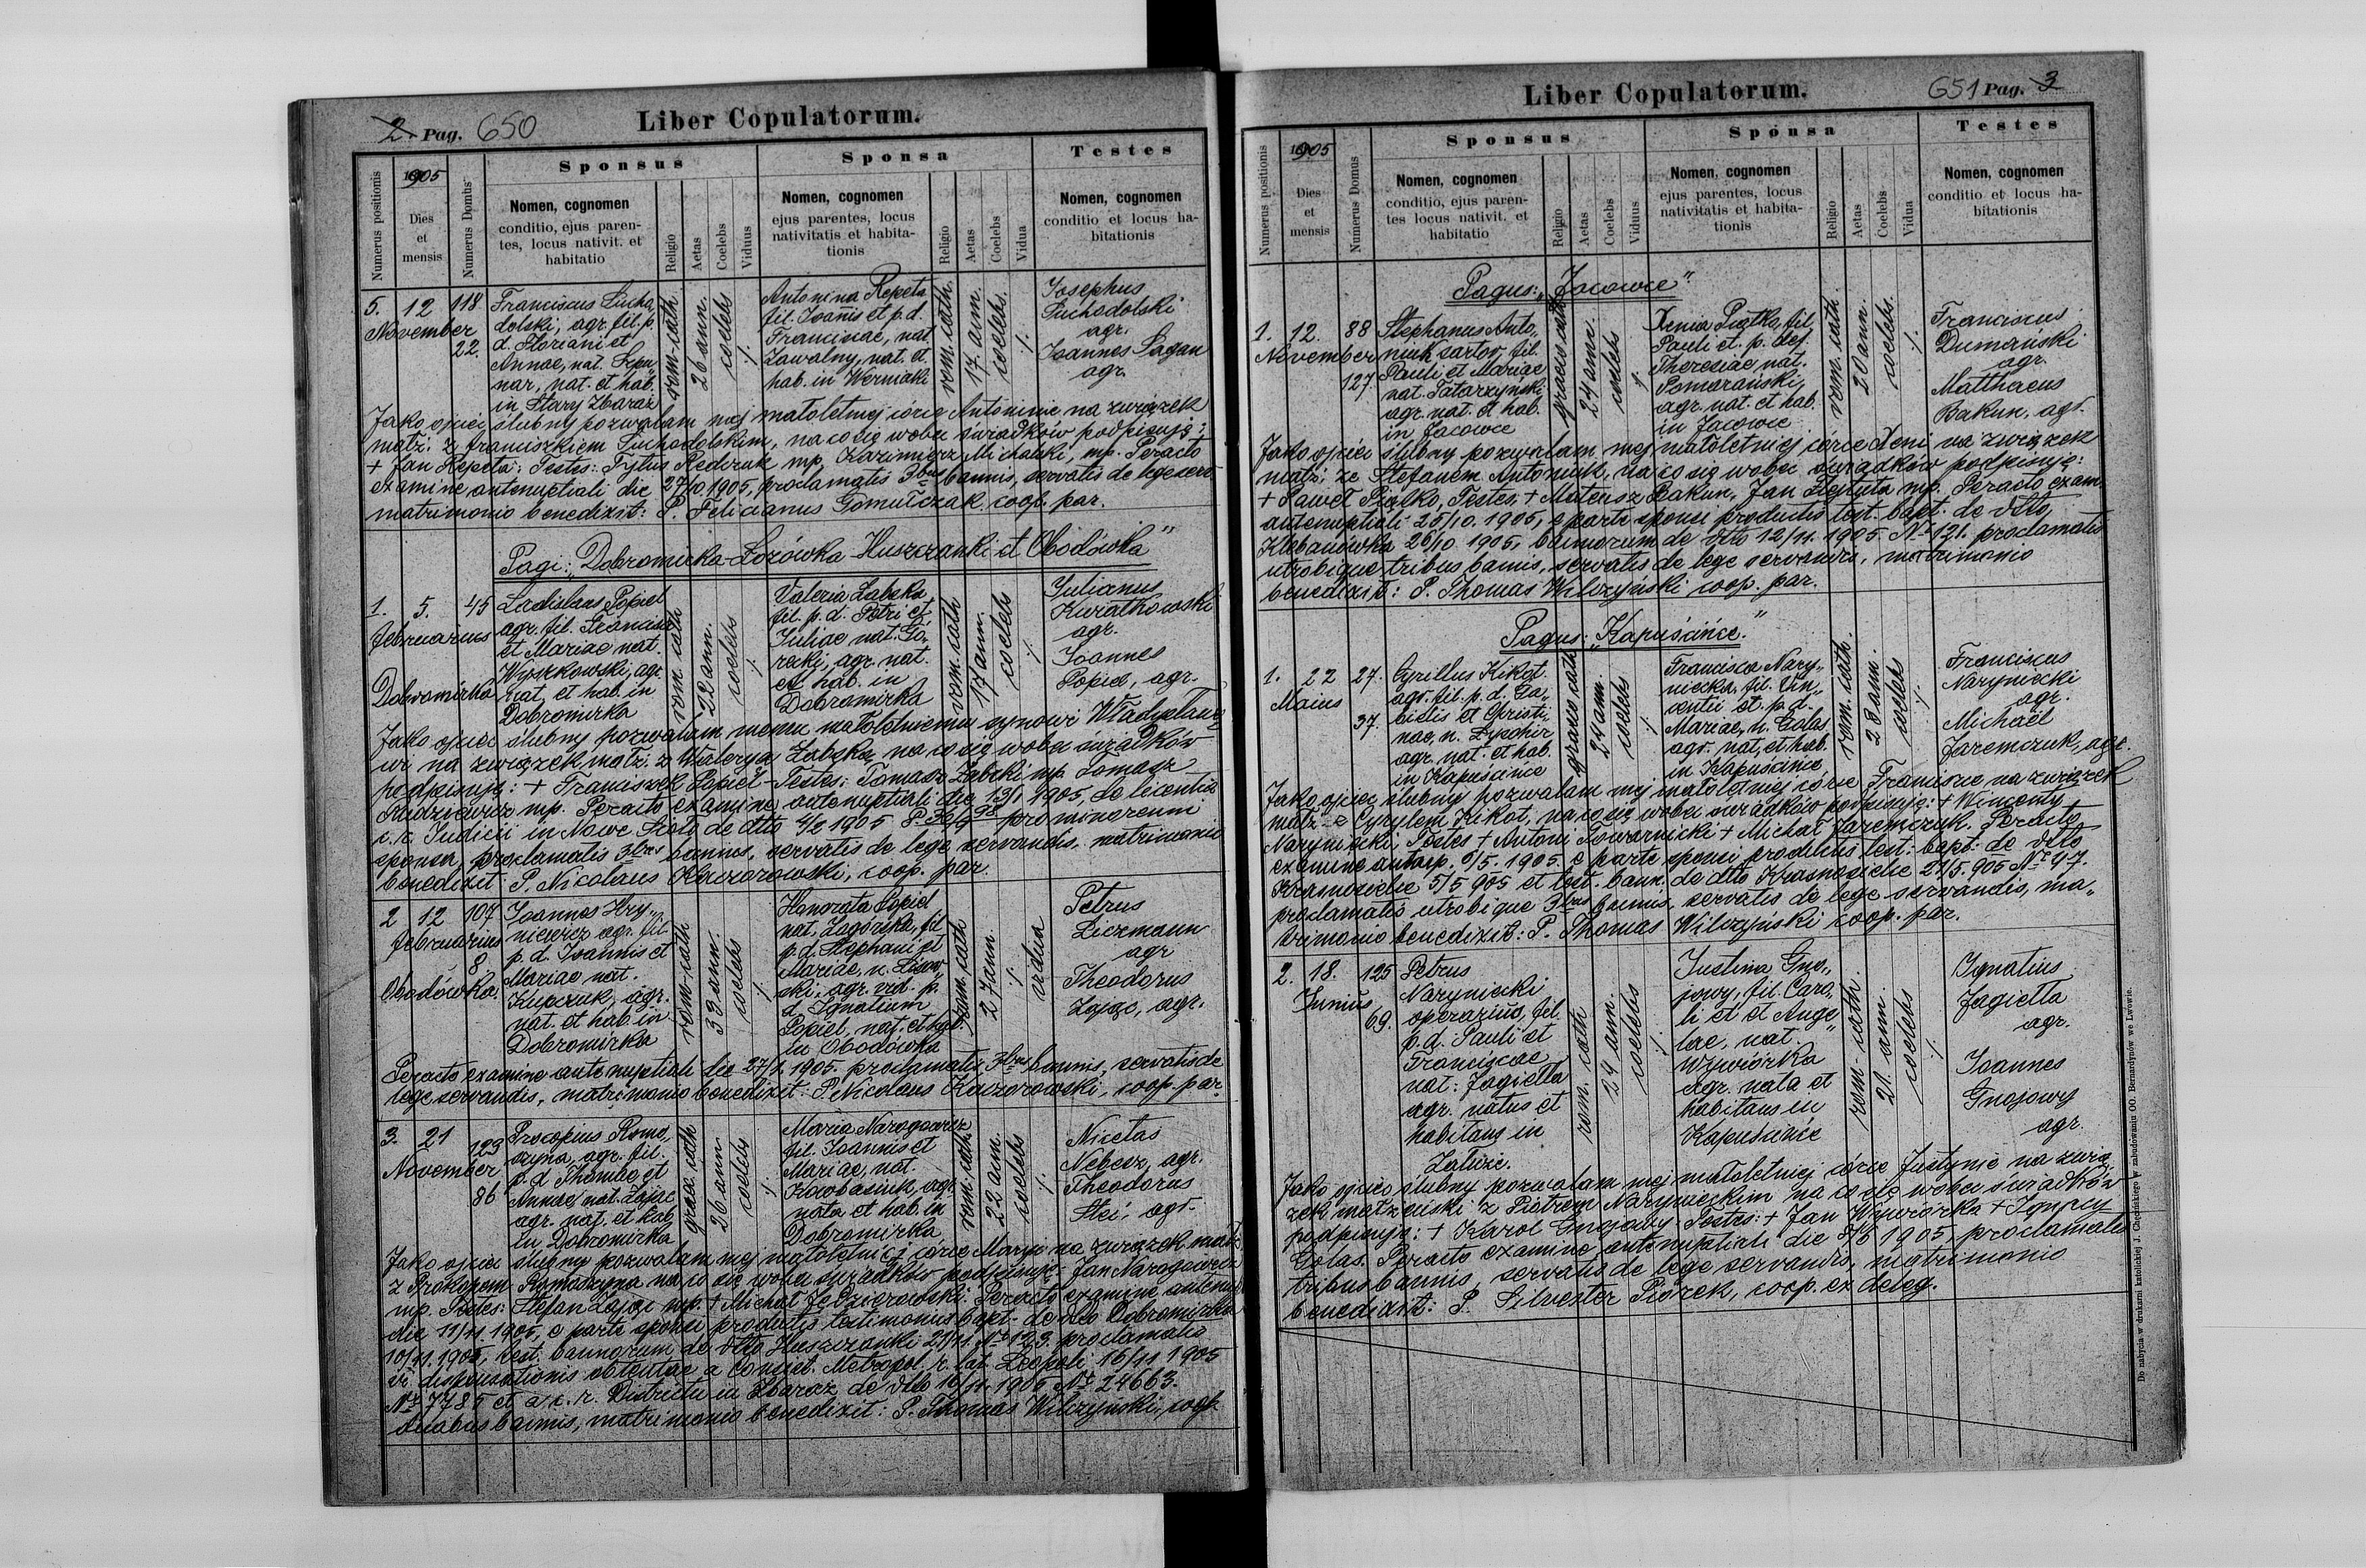 2 Pag. 650
Liber Copulatorum.
Numerus positionis
1905
Dies
et
mensis
Numerus Domus
Sponsus
Nomen, cognomen
conditio, ejus paren-
tes, locus nativit. et
habitatio
Religio
Aetas
Coelebs
Viduus
Sponsa
Nomen, cognomen
ejus parentes, locus
nativitatis et habita-
tionis
Religio
Aetas
Coelebs
Vidua
Testes
Nomen, cognomen
conditio et locus ha-
bitationis
5. 12 118
November
22.
Franciscus Sucho„
dolski, agr. fil. p.
d. Floriani et
Annae, nat.
nar, nat. et hab.
in Stary Zbaraż
rom. cath.
26 ann.
coelebs
Antonina Repeta
fil. Joannis et p. d.
Franciscae, nat.
Zawalny, nat. et
hab. in Werniaki
rom. cath.
17 ann.
coelebs.
Josephus
Suchodolski
agr.
Joannes Sagan
agr.
Jako ojciec ślubny pozwalam mej małoletniej córce Antoninie na związek
małż. z Franciszkiem Suchodolskim, na co się wobec świadków podpisuję:
+ Jan Repeta: Testes: Tytus Redczuk mp. Kazimierz Michalski, mp. Peracto
examine antenuptiali die 27/10 1905, proclamatis 3bus bannis, servatis de lege serv.
matrimonio benedixit: P. Felicianus Gomułczak coop. par.
Pagi: „Dobromirka-Łozówka-Huszczanki et Obodówka"
1. 5. 45
februarius
Dobromirka
Ladislaus Popiel
agr. fil. Francisci
et Mariae nat.
Wyszkowski, agr.
nat. et hab. in
Dobromirka
rom. cath
22 ann.
coelebs
Valeria Zabska
fil. p. d. Petri et
Juliae nat. Gó„
recki, agr. nat.
et hab. in
Dobromirka
rom. cath
17 ann.
coelebs
Julianus
Kwiatkowski
agr.
Joannes
Popiel, agr.
Jako ojciec ślubny pozwalam memu małoletniemu synowi Władysławo
wi na związek małż. z Waleryą Zabską, na co się wobec świadków
podpisuję: + Franciszek Popiel - Testes: Tomasz Zabski mp. Tomasz
mp. Peracto examine antenuptiali die 13/1 1905, de licentia
c. r. Judicii in Nowe Sioło de dtto 4/2 1905 pro minorenni
sponsa, proclamatis 3bus bannis, servatis de lege servandis. matrimonio
benedixit P. Nicolaus Kaczorowski, coop. par.
2 12 107
februarius
8
Obodówka.
Joannes Hry„
niewicz agr. fil.
p. d. Joannis et
Mariae nat.
Kupczuk, agr.
nat. et hab. in
Dobromirka
rom. cath
33 ann.
coelebs
Honorata Popiel
nat. Zagórska, fil.
p. d. Stephani et
Mariae, n. Lisow„
ski, agr. vid. p.
d. Ignatium
Popiel, nat. et hab.
in Obodówka
rom. cath
27 ann.
vidua
Petrus
Liczmann
agr
Theodorus
Zając, agr.
Peracto examine antenuptiali die 27/1 1905. proclamatis 3bus bannis, servatis de
lege servandis, matrimonio benedixit: P. Nicolaus Kaczorowski, coop. par.
3. 21 123
November
86
Procopius Romo„
czyna, agr. fil.
p. d. Thomae et
Annae, nat. Zając
agr. nat. et hab.
in Dobromirka
graec. cath
26 ann
coelebs
Maria Narogowicz
fil. Joannis et
Mariae, nat.
Kowbasiuk, agr.
nata et hab. in
Dobromirka
rom. cath.
22 ann
coelebs
Nicetas
Nebesz, agr.
Theodorus
Stei, agr.
Jako ojciec ślubny pozwalam mej małoletniej córce Maryi na związek małż.
z Prokopem Romoczyna na co się wobec świadków podpisuję: Jan Narogowicz
mp. Testes: Stefan Zając mp. + Michał Jedzierowski: Peracto examine antenup.
die 11/11 1905, e parte sponsi productis testimoniis bapt. de dtto Dobromirka
10/11. 1905, test. bannorum de dtto Huszczanki 21/11. No 123. proclamatis
vi. dispensationis obtentae a Consist. Metropol. r. lat. Leopoli 16/11 1905
No 7785 et a c. r. Districtu in Zbaraż de dtto 16/11. 1905 No 24663.
duabus bannis, matrimonio benedixit: P. Thomas Wilczyński, coop.
Liber Copulatorum.
651 Pag. 3
Numerus positionis
1905
Dies
et
mensis
Numerus Domus
Sponsus
Nomen, cognomen
conditio, ejus paren-
tes locus nativit. et
habitatio
Religio
Aetas
Coelebs
Viduus
Sponsa
Nomen, cognomen
ejus parentes, locus
nativitatis et habita-
tionis
Religio
Aetas
Coelebs
Vidua
Testes
Nomen, cognomen
conditio et locus ha-
bitationis
Pagus: „Jacowce"
1. 12. 88
November
127.
Stephanus Anto„
niuk sartor, fil.
Pauli et Mariae
nat. Tatarzyński
agr. nat. et hab.
in Jacowce
graeco cath
24 ann.
coelebs
Xenia Piątko, fil.
Pauli et. p. def.
Theresiae nat.
Pomorański,
agr. nat. et hab.
in Jacowce
rom. cath.
20 ann.
coelebs.
Franciscus
Dumański
agr.
Matthaeus
Bakun, agr.
Jako ojciec ślubny pozwalam mej małoletniej córce Xeni na związek
małż. ze Stefanem Antoniuk, na co się wobec świadków podpisuję:
+ Paweł Piątko, Testes, + Mateusz Bakun, Jan mp. Peracto exam.
antenuptiali 25/10. 1905, e parte sponsi productis test. bapt. de dtto
Klebanówka 26/10 1905, bannorum de dtto 12/11. 1905. No 121. proclamatis
utrobique tribus bannis, servatis de lege servandis, matrimonio
benedixit: P. Thomas Wilczyński coop. par.
Pagus: „Kapuścińce."
1. 22 27.
Maius
37.
Cyrillus Kikot
agr. fil. p. d. Ga„
bielis et Christi„
nae, n.
agr. nat. et hab.
in Kapuścińce
graeco cath
24 ann.
coelebs
Francisca Nary„
niecka, fil. Vin„
centii et p. d.
Mariae, n. Golas
agr. nat. et hab.
in Kapuścińce
rom. cath.
28 ann.
coelebs
Franciscus
Naryniecki
agr.
Michaël
Jaremczuk, agr.
Jako ojciec ślubny pozwalam mej małoletniej córce Francisce na związek
małż. z Cyrylem Kikot, na co się wobec świadków podpisuję: + Wincenty
Naryniecki, Testes + Antoni Towarnicki + Michał Jaremczuk. Peracto
examine antenup. 6/5. 1905. e parte sponsi productis test. bapt. de dtto
Krasnosielce 5/5 905 et test. bann. de dtto Krasnosielce 21/5. 905 No 47.
proclamatis utrobique 3bus bannis, servatis de lege servandis, ma„
trimonio benedixit: P. Thomas Wilczyński coop. par.
2. 18. 125
Junius
69.
Petrus
Naryniecki
operarius, fil.
p. d. Pauli et
Franciscae
nat: Jagiełła
agr. natus et
habitans in
Załuże.
rom. cath
24 ann.
coelebs
Justina Gno„
jowy, fil. Caro„
li et et Ange„
lae, nat.
Wywiórka
agr. nata et
habitans in
Kapuścińce
rom. cath.
21. ann.
coelebs
Ignatius
Jagiełła
agr.
Joannes
Gnojowy
agr
Jako ojciec ślubny pozwalam mej małoletniej córce Justynie na zwią
zek małżeński z Piotrem Narynieckim na co się wobec świadków
podpisuję: + Karol Gnojowy Testes: + Jan Wywiórka + Ignacy
Golas. Peracto examine antenuptiali die 8/6 1905, proclamatis
tribus bannis, servatis de lege servandis, matrimonio
benedixit: P. Silvester Piórek, coop. ex deleg.
Do nabycia w drukarni katolickiej J. Chęcińskiego w zabudowaniu OO. Bernardynów we Lwowie.